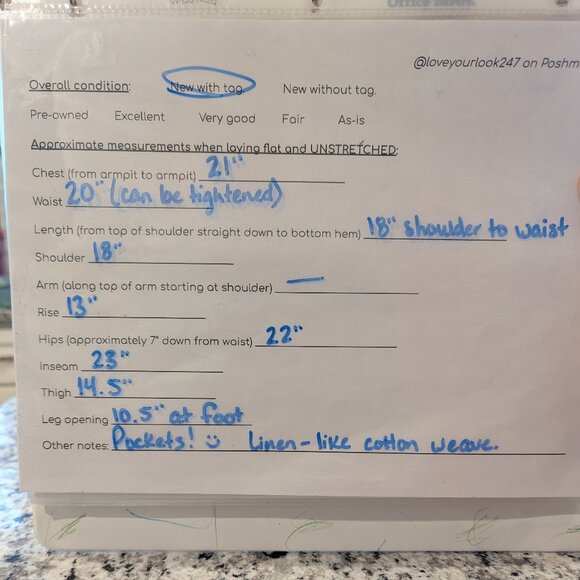 Office DEPOT
@loveyourlook247 on Poshm
Overall condition: New with tag. New without tag.
Pre-owned Excellent Very good Fair As-is
Approximate measurements when laying flat and UNSTRETCHED:
Chest (from armpit to armpit) 21"
Waist 20" (can be tightened)
Length (from top of shoulder straight down to bottom hem) 18" shoulder to waist
Shoulder 18"
Arm (along top of arm starting at shoulder) —
Rise 13"
Hips (approximately 7" down from waist) 22"
Inseam 23"
Thigh 14.5"
Leg opening 10.5" at foot
Other notes: Pockets! Linen-like cotton weave.